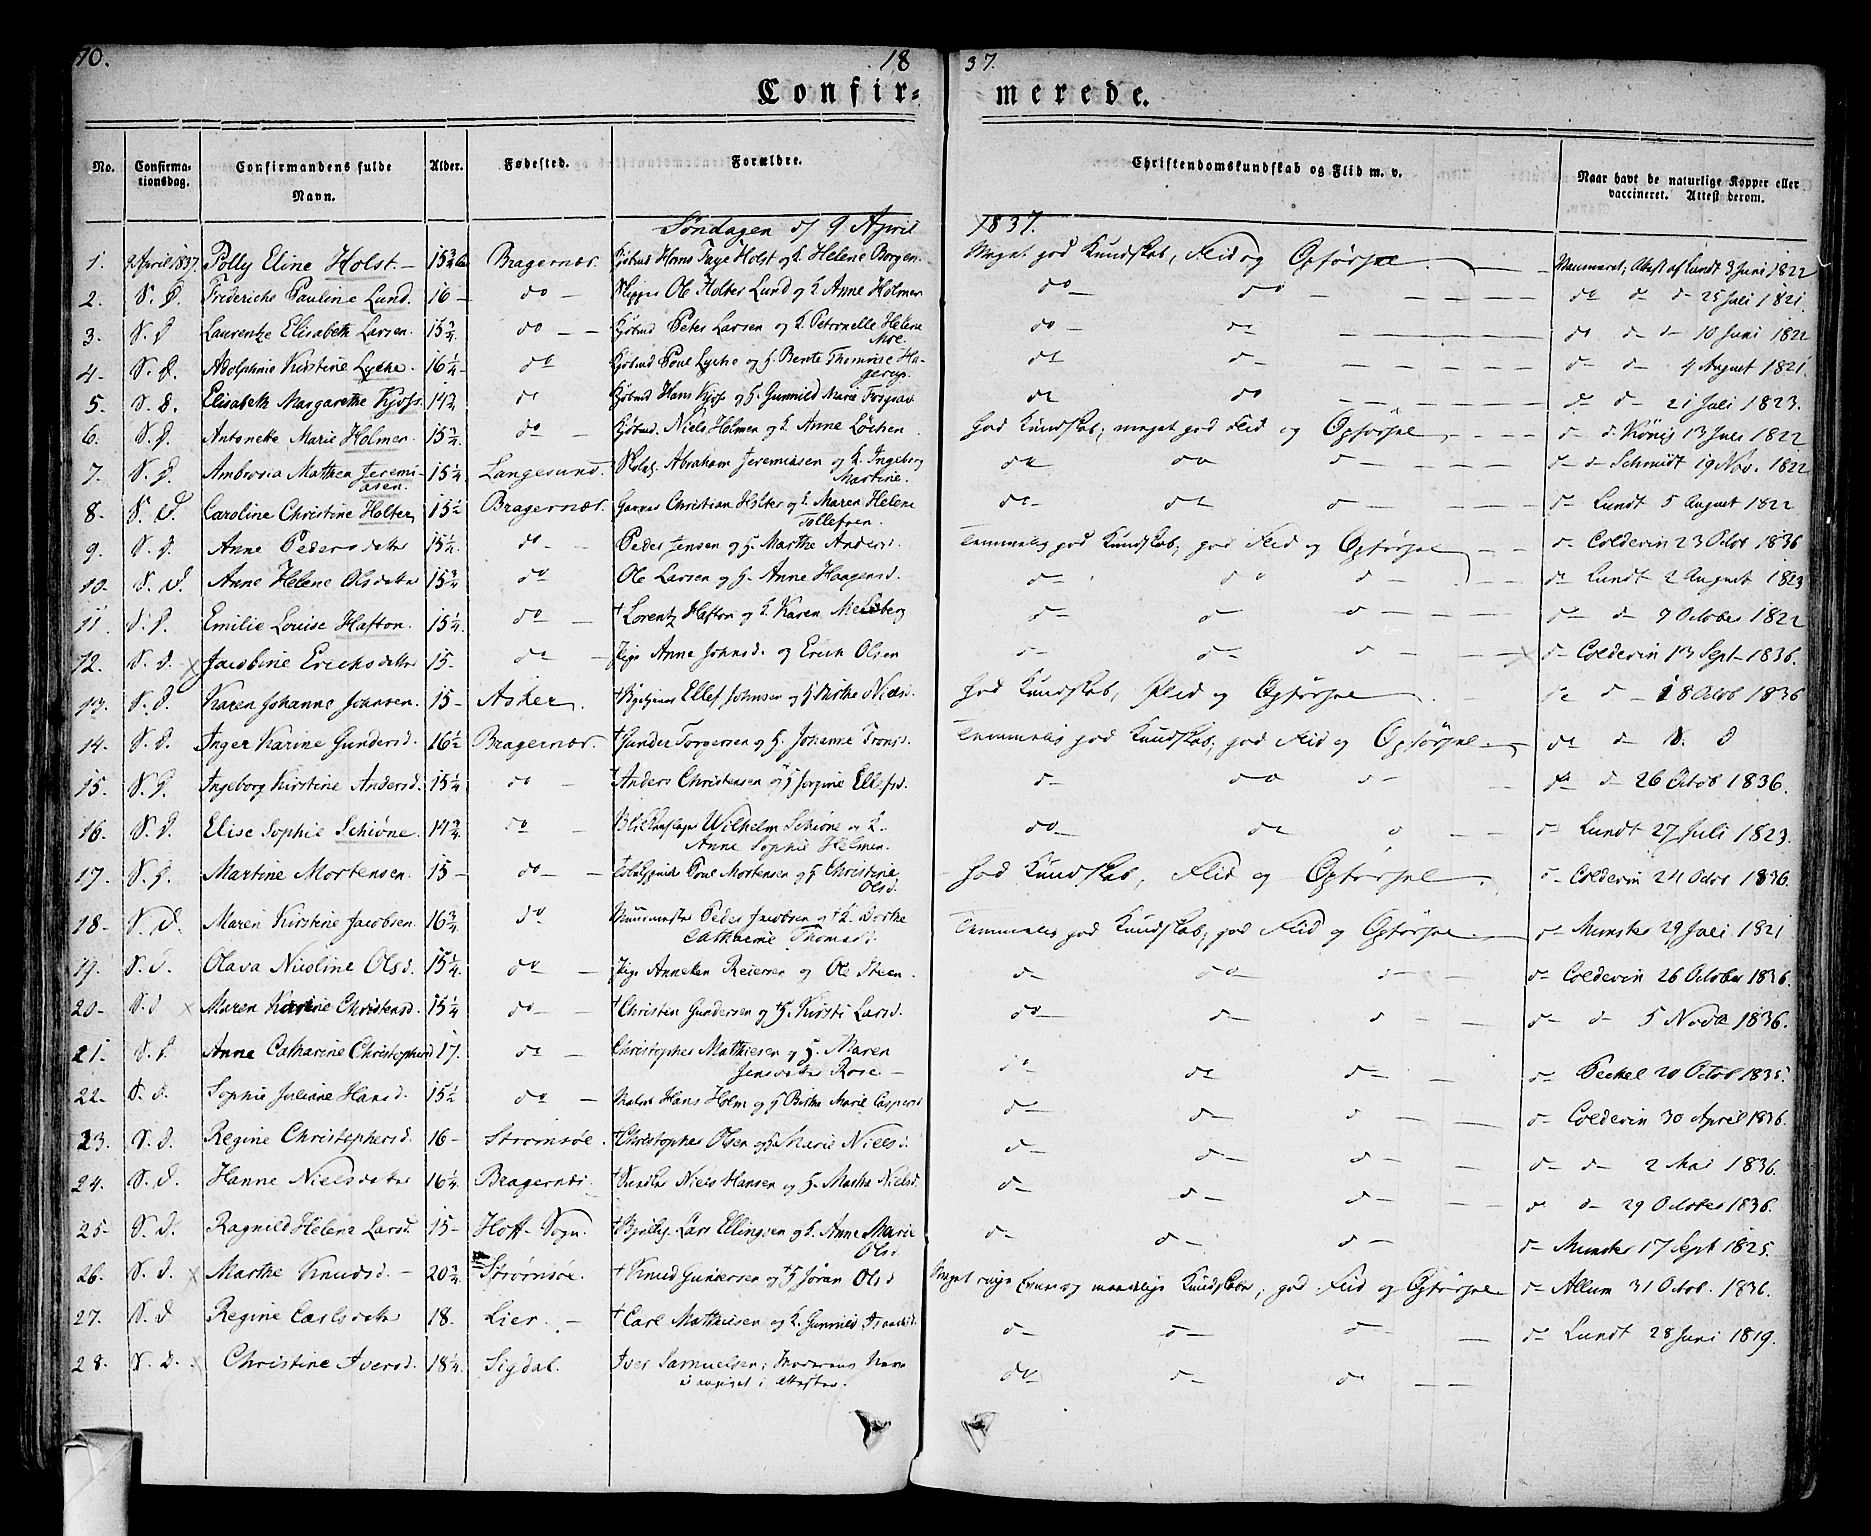 70.
18
37.
Confir=
merede.
No. Confirma-tionsdag. Confirmandens fulde Navn. Alder. Fødested. Forældre. Christendomskundskab og Flid m. v. Naar havt de naturlige Kopper eller vaccineret. Attest derom.
Søndagen d 9 April 1837.
1. 9 April 1837. Polly Eline Holst. 15 3/4 Bragernæs. Kjøbmd Hans Faye Holst og H. Helene Borgen. Meget god Kundskab, Flid og Opførsel. Lundt 3 Juni 1822
2. S. D. Frideriche Pauline Lund. 16 do Skipper Ole Holter Lund og H. Anne Holmen do do do d d 25 Juli 1821.
3. S. D Laurentze Elisabeth Larsen. 15 3/4 do Kjøbmd Peter Larsen og H. Petronelle Helene Moe. do do do d d 10 Juni 1822
4. S. D. Adolphine Kirstine Lyche. 16 1/4 do Kjøbmd Poul Lyche og H. Bente Thomine Hagerup. do d d d 4 August 1821.
5. S. D. Elisabeth Margarethe Kjøss. 14 3/4 do Kjøbmd Hans Kjøss og H. Gunnild Marie do do do d 21 Juli 1823.
6. S. D. Antonette Marie Holmen. 15 3/4 do Kjøbmd. Niels Holmen og H. Anne Løchen. God Kundskab, meget god Flid og Opførsel d d König 13 Juli 1822
7. S. D. Ambrosia Mathea Jeremiasen. 15 1/4 Langesund. Abraham Jeremiasen og H. Ingeborg Martine. do do d d d Schmidt 19 Nov. 1822
8. S. D. Caroline Christine Holter, 15 1/2 Bragernæs. Christian Holter og H. Maren Helene Tollefsen. do do d d Lundt 5 August 1822
9. S. D. Anne Pedersdatter 15 1/4. do Peder Jensen og H. Marthe Andersd. Temmelig god Kundskab, god Flid og Opførsel d Coldevin 23 Octob 1836
10. S. D. Anne Helene Olsdatter 15 3/4 do Ole Larsen og H. Anne Haagensd. d do d do Lundt 2 August 1823
11. S. D. Emilie Louise Hafton. 15 1/4. do † Lorentz Hafton og H. Karen d d d d d 9 October 1822
12. S. D. × Jacobine Erichsdatter 15 do Pige Anne Johnsd. og Erich Olsen d d d d Coldevin 13 Sept 1836.
13. S. D. Karen Johanne Johnsen. 15 Asker. † Ellef Johnsen og H Birthe Nielsd. God Kundskab, Flid og Opførsel do d 18 Octob 1836
14. S. D. Inger Karine Gundersd. 16 1/2 Bragernæs. † Gunder Torgersen og H. Johanne Temmelig god Kundskab, god Flid og Opførsel do d S. D
15. S. D. Ingeborg Kirstine Andersd. 15 1/4 do † Anders Christensen og H Jorgine Ellefsd. d do d do d 26 Octob 1836.
16. S. D. Elise Sophie Schiøne. 14 3/4. do Blikkenslager Wilhelm Schiøne og H. Anne Sophie Helmen. do do d d Lundt 27 Juli 1823.
17. S. D. Martine Mortensen. 15 do Poul Mortensen og H Christine Olsd. God Kundskab, Flid og Opførsel. d Coldevin 24 Octob 1836.
18. S. D. Maren Kirstine Jacobsen. 16 3/4 do Muurmester Peder Jacobsen og † H. Dorthe Catharine Thomasd. Temmelig god Kundskab, god Flid og Opførsel. d Munster 29 Juli 1821
19. S. D. Olava Nicoline Olsd. 15 1/4 do Pige Anneken Reiersen og Ole Steen. d do d d Coldevin 26 October 1836.
20. S. D × Maren Karine Christensd. 15 1/4 do † Christen Gundersen og † H. Kirsti Larsd. do d d d d 5 Novbr 1836.
21. S. D. Anne Catharine Christophersd 17. do Christopher Mathiesen og H. Maren Jensdatter Rose d do d d Peckel 20 Octob 1835.
22. S. D. Sophie Juliane Hansd. 15 1/2 do Hans Holm og H Birthe Marie Caspersd d d d d Coldevin 30 April 1836.
23. S. D. Regine Christophersd. 16 Strømsøe. † Christopher Olsen og H Marie Nielsd. d d d d d 2 Mai 1836.
24. S. D. Hanne Nielsdatter 16 1/4. Bragernæs. † Niels Hansen og H. Martha Nielsd. d d d d d 29 October 1836.
25. S. D. Ragnild Helene Larsd. 15 Hoff Sogn. † Lars Ellingsen og H. Anne Marie Olsd. d d d d Munster 17 Sept 1825.
26. S. D. × Marthe Knudsd. 20 3/4 Strømsøe. † Knud Gundersen og † H Jøran Olsd Meget ringe Evne og maadelig Kundskab, god Flid og Opførsel d Allum 31 Octob. 1836.
27. S. D Regine Carlsdatter 18. Lier. † Carl Mathiesen og H. Gunnild d d d d Lundt 28 Juni 1819.
28. S. D. × Christine Iversd. 18 1/4. Sigdal. Iver Samuelsen; Moderens Navn ei angivet i Attesten. do d d